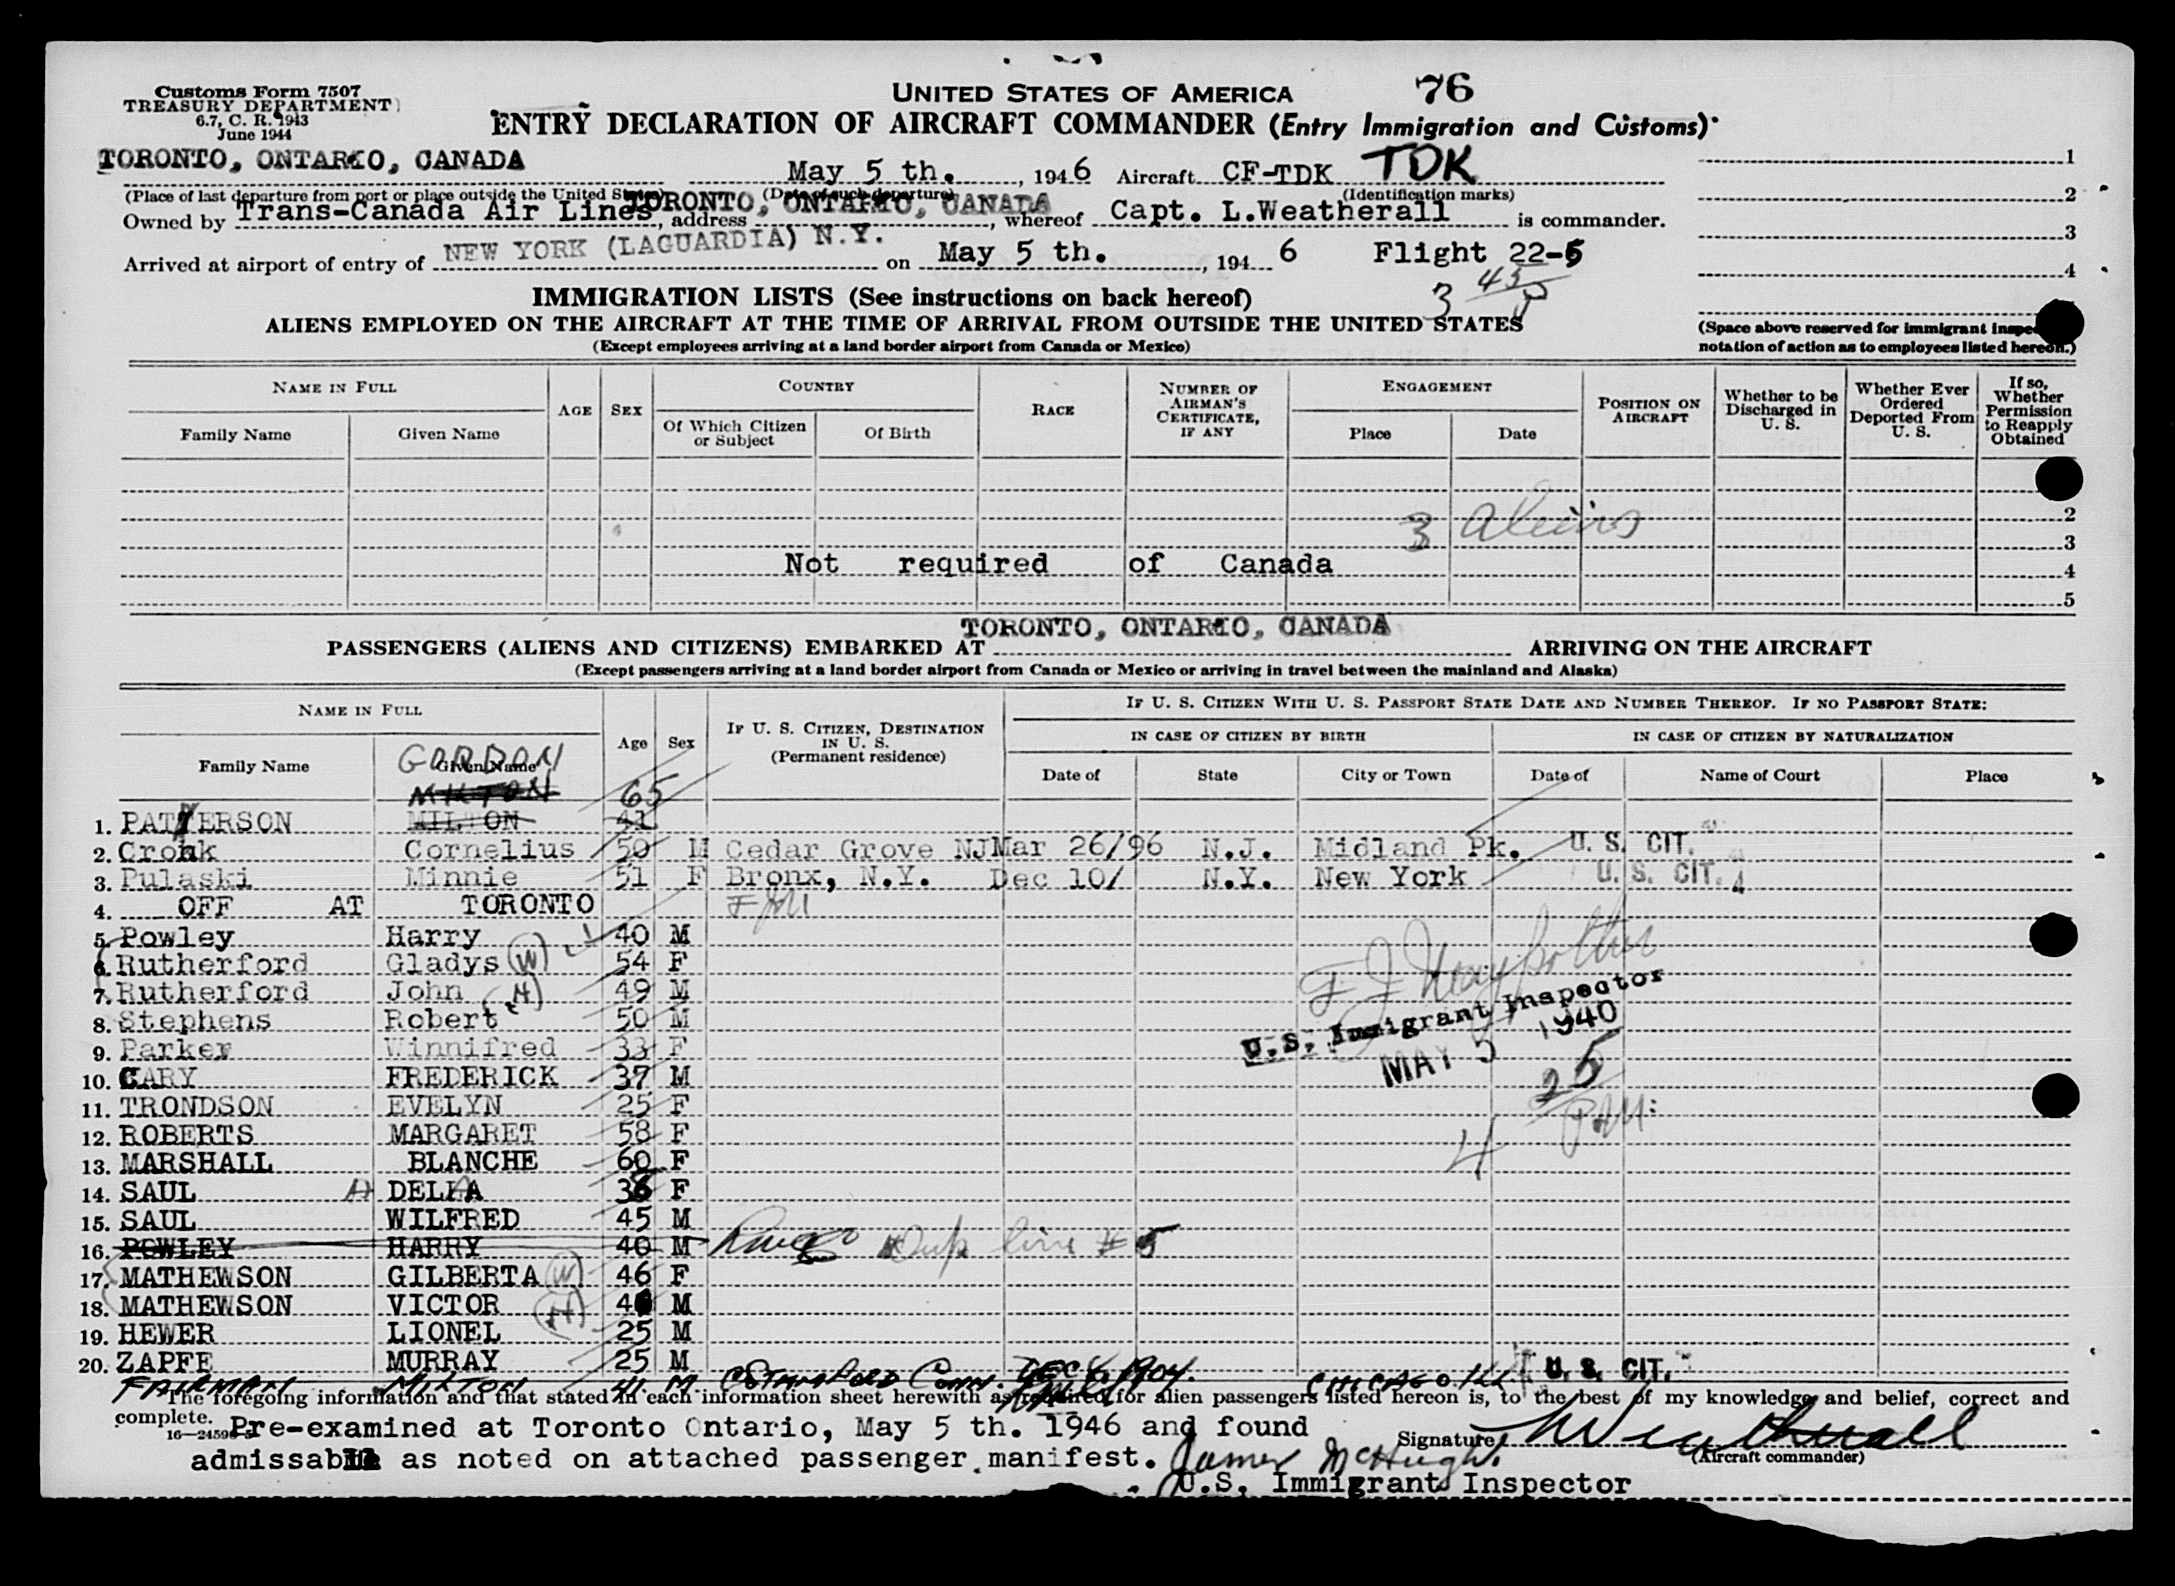 Customs Form 7507
TREASURY DEPARTMENT
6.7, C. R. 1943
June 1944
UNITED STATES OF AMERICA 76
ENTRY DECLARATION OF AIRCRAFT COMMANDER (Entry Immigration and Customs)
TORONTO, ONTARIO, CANADA May 5 th., 1946 Aircraft CF-TDK TDK 1
(Place of last departure from port or place outside the United States) (Date of such departure) (Identification marks) 2
Owned by Trans-Canada Air Lines, address TORONTO, ONTARIO, CANADA, whereof Capt. L.Weatherall is commander.
3
Arrived at airport of entry of NEW YORK (LAGUARDIA) N.Y. on May 5 th., 194 6 Flight 22-5
4
3 45
IMMIGRATION LISTS (See instructions on back hereof)
ALIENS EMPLOYED ON THE AIRCRAFT AT THE TIME OF ARRIVAL FROM OUTSIDE THE UNITED STATES
(Except employees arriving at a land border airport from Canada or Mexico)
(Space above reserved for immigrant
notation of action as to employees listed hereon.)
NAME IN FULL AGE SEX COUNTRY RACE NUMBER OF AIRMAN'S CERTIFICATE, IF ANY ENGAGEMENT POSITION ON AIRCRAFT Whether to be Discharged in U. S. Whether Ever Ordered Deported From U. S. If so, Whether Permission to Reapply Obtained
Family Name Given Name Of Which Citizen or Subject Of Birth Place Date
2
3 Aliens
3
Not required of Canada
4
5
TORONTO, ONTARIO, CANADA
PASSENGERS (ALIENS AND CITIZENS) EMBARKED AT ARRIVING ON THE AIRCRAFT
(Except passengers arriving at a land border airport from Canada or Mexico or arriving in travel between the mainland and Alaska)
NAME IN FULL Age Sex IF U. S. CITIZEN, DESTINATION IN U. S. (Permanent residence) IF U. S. CITIZEN WITH U. S. PASSPORT STATE DATE AND NUMBER THEREOF. IF NO PASSPORT STATE:
IN CASE OF CITIZEN BY BIRTH IN CASE OF CITIZEN BY NATURALIZATION
Family Name Given Name Date of State City or Town Date of Name of Court Place
GORDON
MILTON 65
1. PATTERSON MILTON 41
2. Cronk Cornelius 50 M Cedar Grove NJ Mar 26/96 N.J. Midland Pk. U. S. CIT.
3. Pulaski Minnie 51 F Bronx, N.Y. Dec 10/ N.Y. New York U. S. CIT. 4
4. OFF AT TORONTO
5. Powley Harry 40 M
6. Rutherford Gladys (W) 54 F
7. Rutherford John (H) 49 M
8. Stephens Robert 50 M
9. Parker Winnifred 33 F
U.S. Immigrant Inspector
MAY 5 1940
10. CARY FREDERICK 37 M
25
11. TRONDSON EVELYN 25 F
12. ROBERTS MARGARET 58 F
4
13. MARSHALL BLANCHE 60 F
14. SAUL DELLA 38 F
15. SAUL WILFRED 45 M
16. POWLEY HARRY 40 M Dup line # 5
17. MATHEWSON GILBERTA (W) 46 F
18. MATHEWSON VICTOR (H) 4 M
19. HEWER LIONEL 25 M
20. ZAPFE MURRAY 25 M U. S. CIT.
FAIRMAN MILTON 41 M STAMFORD CONN. DEC 6, 1904. CHICAGO. ILL
The foregoing information and that stated in each information sheet herewith as required for alien passengers listed hereon is, to the best of my knowledge and belief, correct and
complete.
Pre-examined at Toronto Ontario, May 5 th. 1946 and found
Signature Weatherall
(Aircraft commander)
admissable as noted on attached passenger manifest. James McHugh
U.S. Immigrant Inspector